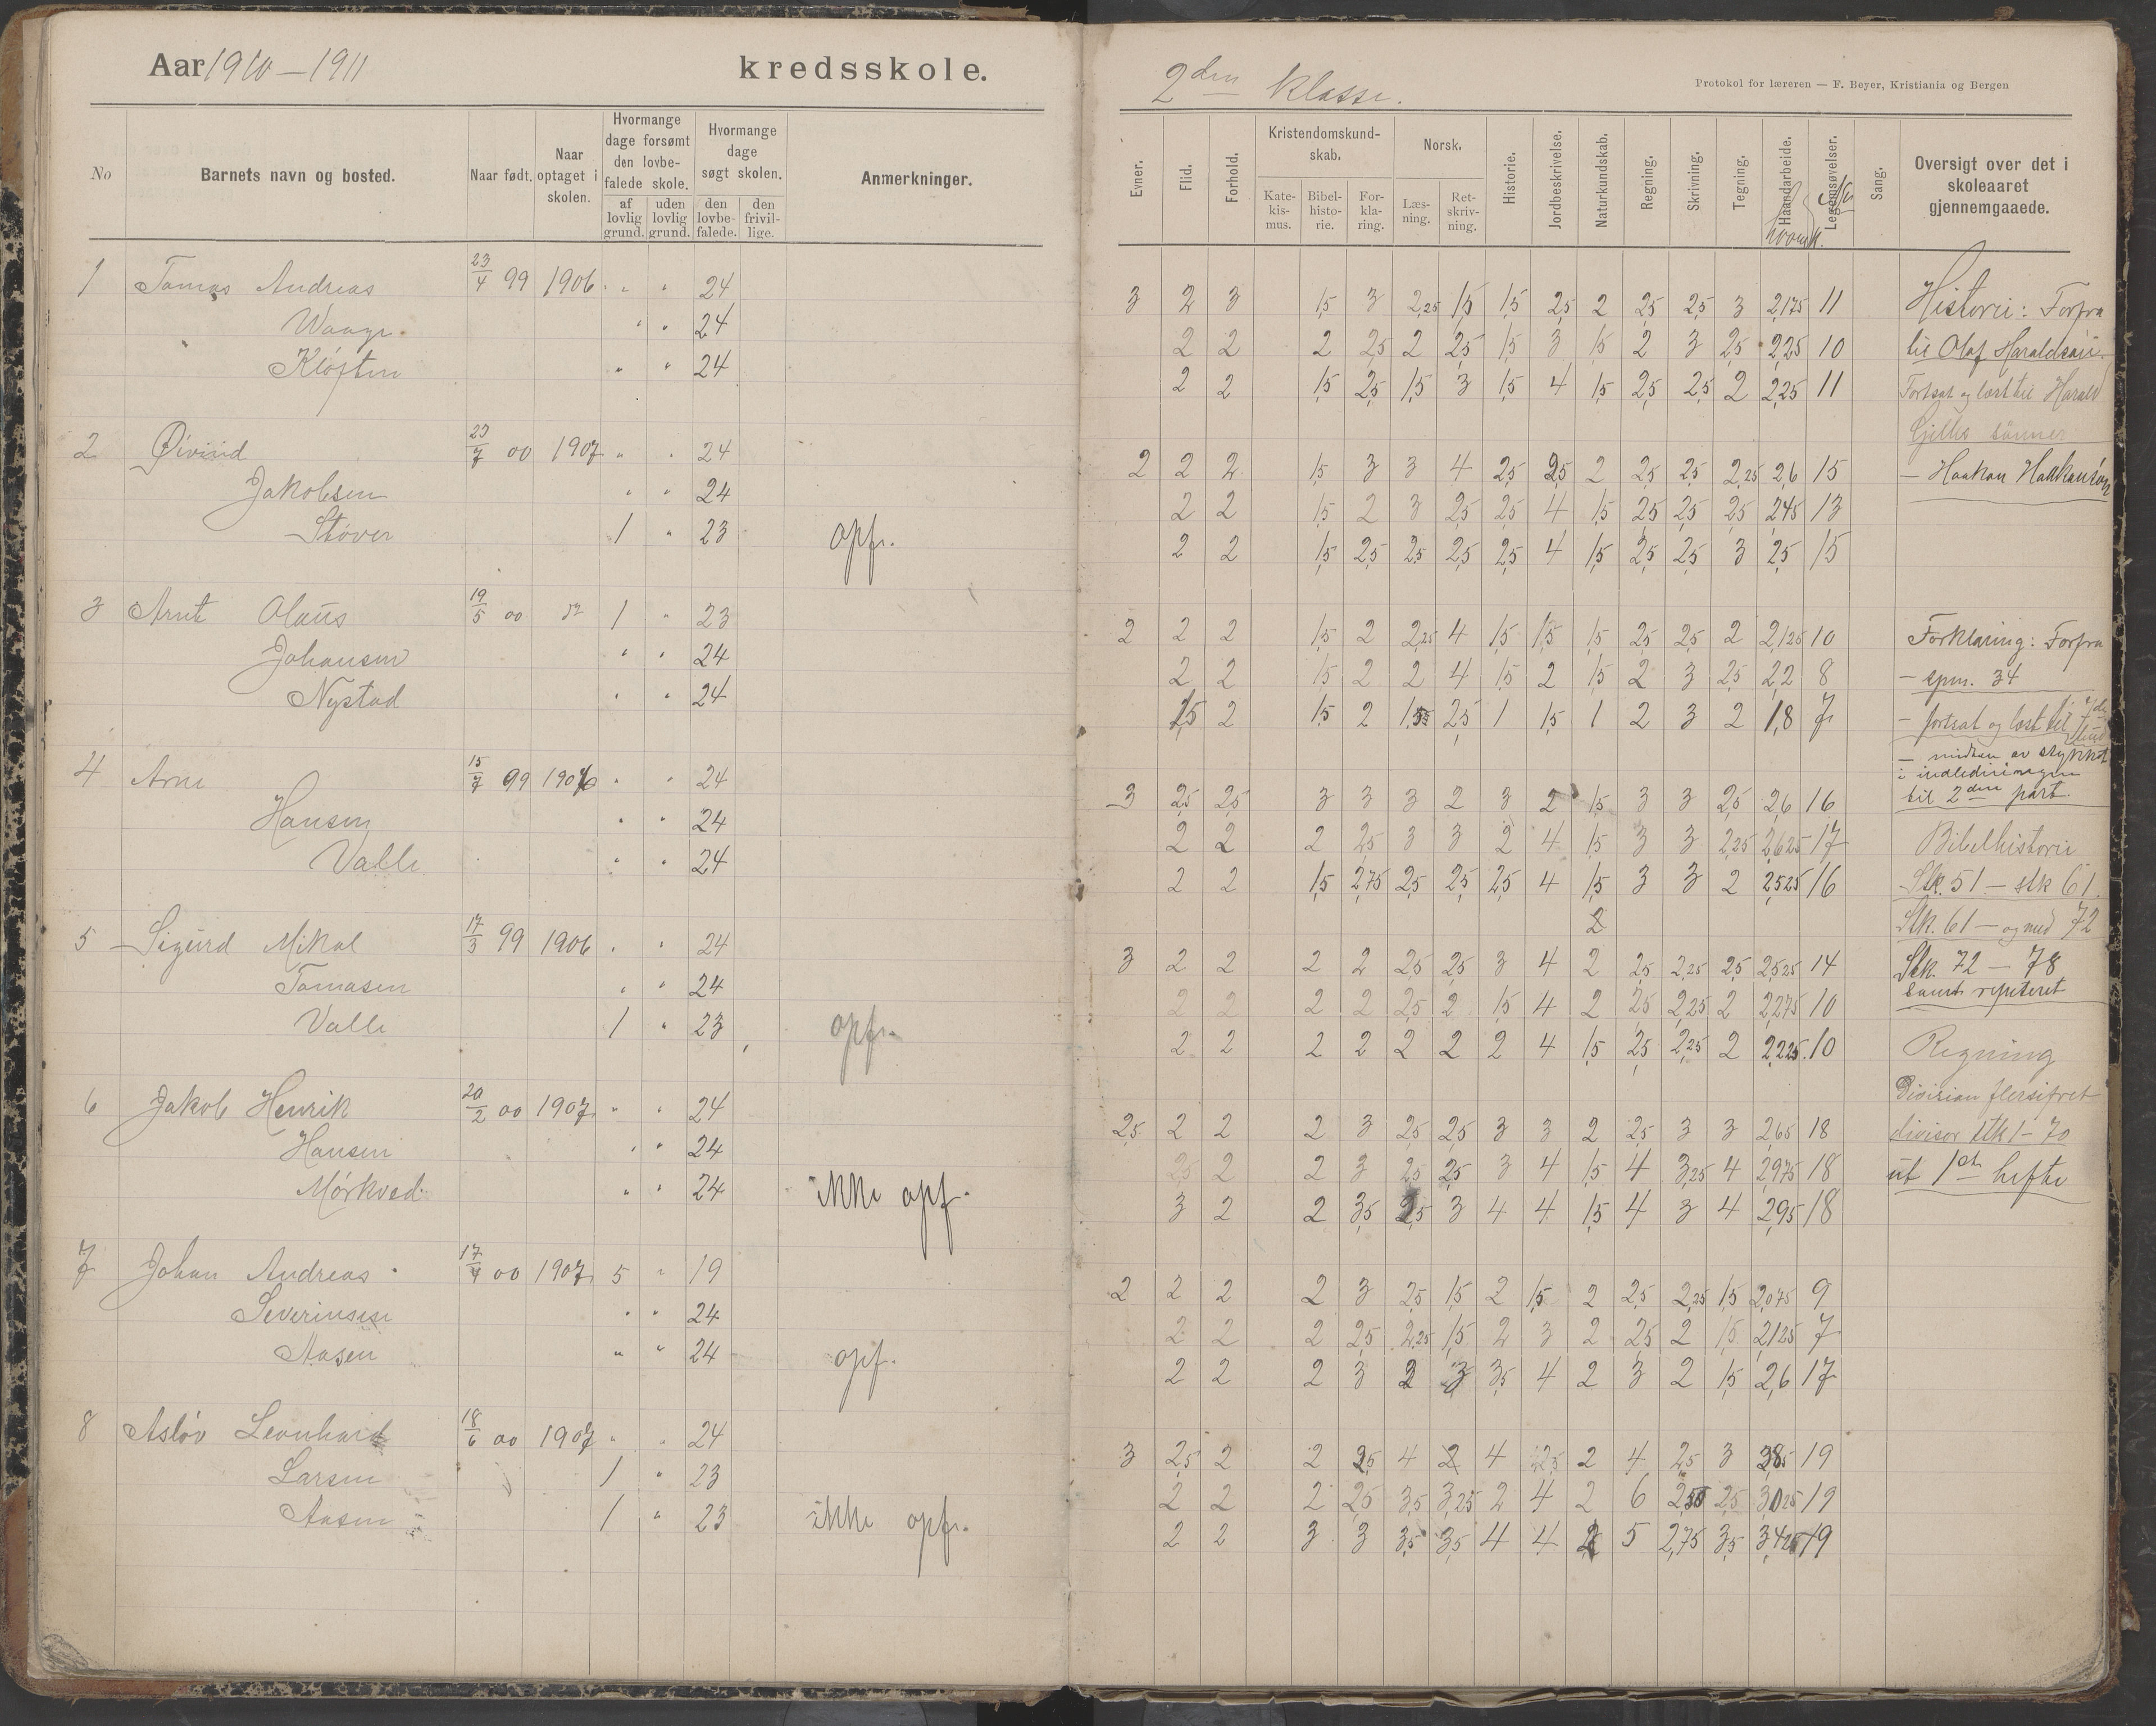 Aar 1910 — 1911 kredsskole.
No
Barnets navn og bosted.
Naar født.
Naar optaget i skolen.
Hvormange dage forsømt den lovbefalede skole.
af lovlig grund.
uden lovlig grund.
Hvormange dage søgt skolen.
den lovbefalede.
den frivillige.
Anmerkninger.
1 Tomas Andreas 23/4 99 1906 " " 24
Waage " " 24
Kløften " " 24
2 Øivind 23/7 00 1907 " " 24
Jakobsen " " 24
Støver 1 " 23 opf.
3 Arnt Olaus 19/5 00 " 1 " 23
Johansen " " 24
Nystad " " 24
4 Arne 15/7 99 1906 " " 24
Hansen " " 24
Valle " " 24
5 Sigurd Mikal 17/3 99 1906 " " 24
Tomasen " " 24
Valle 1 " 23 opf.
6 Jakob Henrik 20/2 00 1907 " " 24
Hansen " " 24
Mørkved " " 24 ikke opf.
7 Johan Andreas 17/4 00 1907 5 " 19
Severinsen " " 24
Aasen " " 24 opf.
8 Asløv Leonhard 18/6 00 1907 " " 24
Larsen 1 " 23
Aasen 1 " 23 ikke opf.
2den Klasse.
Protokol for læreren — F. Beyer, Kristiania og Bergen
Evner.
Flid.
Forhold.
Kristendomskundskab.
Katekismus.
Bibelhistorie.
Forklaring.
Norsk.
Læsning.
Retskrivning.
Historie.
Jordbeskrivelse.
Naturkundskab.
Regning.
Skrivning.
Tegning.
Haandarbeide.
Legemsøvelser.
Sang.
Oversigt over det i skoleaaret gjennemgaaede.
3 2 3 1,5 3 2,25 1,5 1,5 2,5 2 2,5 2,5 3 2,175 11 Historie: Forfra
2 2 2 2,5 2 2,5 1,5 3 1,5 2 3 2,5 2,25 10 til Olaf Haraldsøn.
2 2 1,5 2,5 1,5 3 1,5 4 1,5 2,5 2,5 2 2,25 11 Fortsat og læst til Harald
Gilles sønner
2 2 2 1,5 3 3 4 2,5 2,5 2 2,5 2,5 2,25 2,6 15 — Haakon Haakonsøn
2 2 1,5 2 3 2,5 2,5 4 1,5 2,5 2,5 2,5 2,45 13
2 2 1,5 2,5 2,5 2,5 2,5 4 1,5 2,5 2,5 3 2,5 15
2 2 2 1,5 2 2,25 4 1,5 1,5 1,5 2,5 2,5 2 2,125 10 Forklaring: Forfra
2 2 1,5 2 2 4 1,5 2 1,5 2 3 2,5 2,2 8 — spm. 34
1,5 2 1,5 2 1,5 2,5 1 1,5 1 2 3 2 1,8 7 — fortsat og læst til 7de bud
— midten av stykket
i indledningen
til 2den part.
3 2,5 2,5 3 3 3 2 3 2 1,5 3 3 2,5 2,6 16
2 2 2 2,5 3 3 2 4 1,5 3 3 2,25 2,625 17 Bibelhistorie
2 2 1,5 2,75 2,5 2,5 2,5 4 1,5 3 3 2 2,525 16 Stk. 51 — stk 61.
2 Stk. 61 — og med 72
3 2 2 2 2 2,5 2,5 3 4 2 2,5 2,25 2,5 2,525 14 Stk. 72 — 78
2 2 2 2 2,5 2 1,5 4 2 2,5 2,25 2 2,275 10 samt repeteret
2 2 2 2 2 2 2 4 1,5 2,5 2,25 2 2,225 10 Regning
Division flersifret
2,5 2 2 2 3 2,5 2,5 3 3 2 2,5 3 3 2,65 18 divisor stk 1 — 70
2,5 2 2 3 2,5 2,5 3 4 1,5 4 3,25 4 2,975 18 ut 1st hefte
3 2 2 3,5 2,5 3 4 4 1,5 4 3 4 2,95 18
2 2 2 2 3 2,5 1,5 2 1,5 2 2,5 2,25 1,5 2,075 9
2 2 2 2,5 2,25 1,5 2 3 2 2,5 2 1,5 2,125 7
2 2 2 3 2 3 3,5 4 2 3 2 1,5 2,6 17
3 2,5 2 2 2,5 4 2 4 2,5 2 4 2,5 3 19
2 2 2 2,5 3,5 3,25 2 4 2 6 2,5 2,5 3,025 19
2 2 3 3 3,5 3,5 4 4 2 5 2,75 3,5 3,425 19